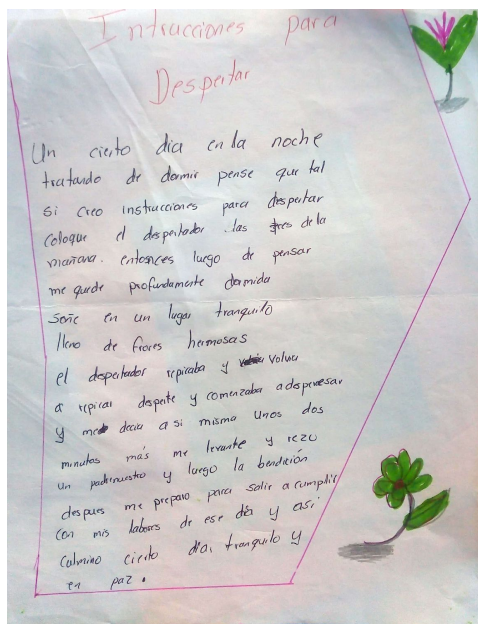 Intrucciones para
Despertar
Un cierto dia en la noche
tratando de dormir pense que tal
si creo instrucciones para despertar
coloque el despertador las tres de la
mañana. entosnces luego de pensar
me quede profundamente dormida
soñe en un lugar tranquilo
lleno de frores hermosas
el despertador repicaba y volvia
a repicar desperte y comenzaba a desperesar
y me decia a si misma unos dos
minutos más me levante y rezo
un padrenuestro y luego la bendición
despues me preparo para salir a cumplir
con mis labores de ese día y asi
culmino cierto dia, tranquilo y
en paz.